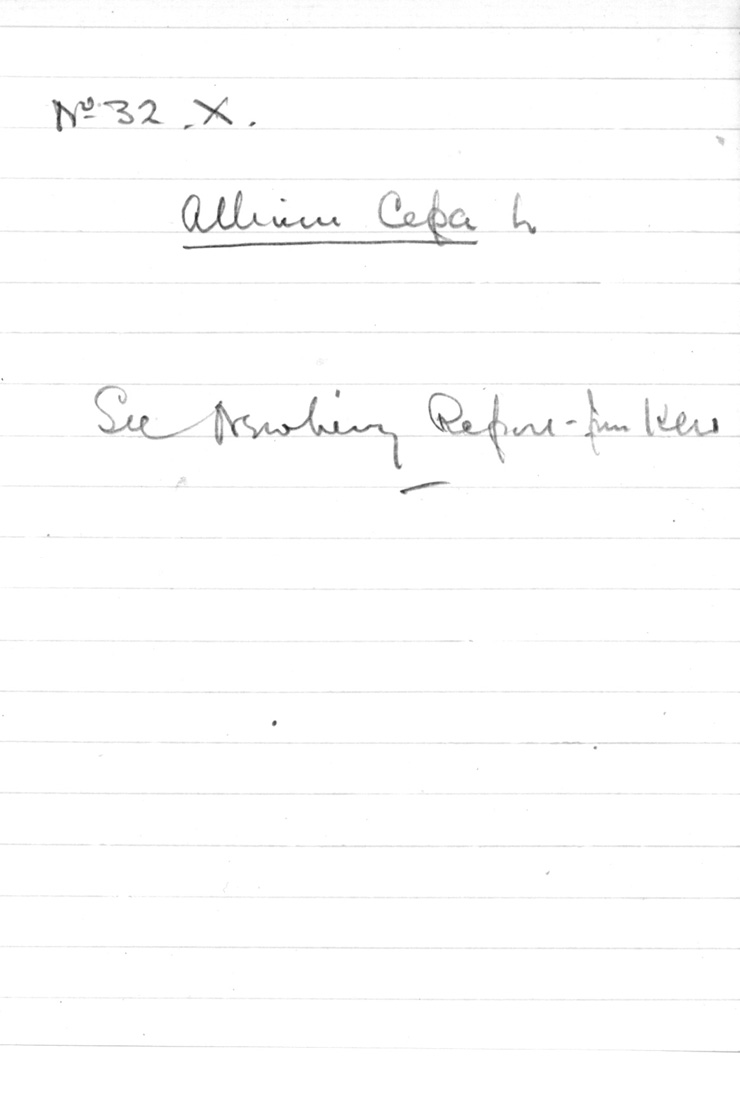 Nº 32 . X .
Allium Cepa L
See Newberry Report from Kew